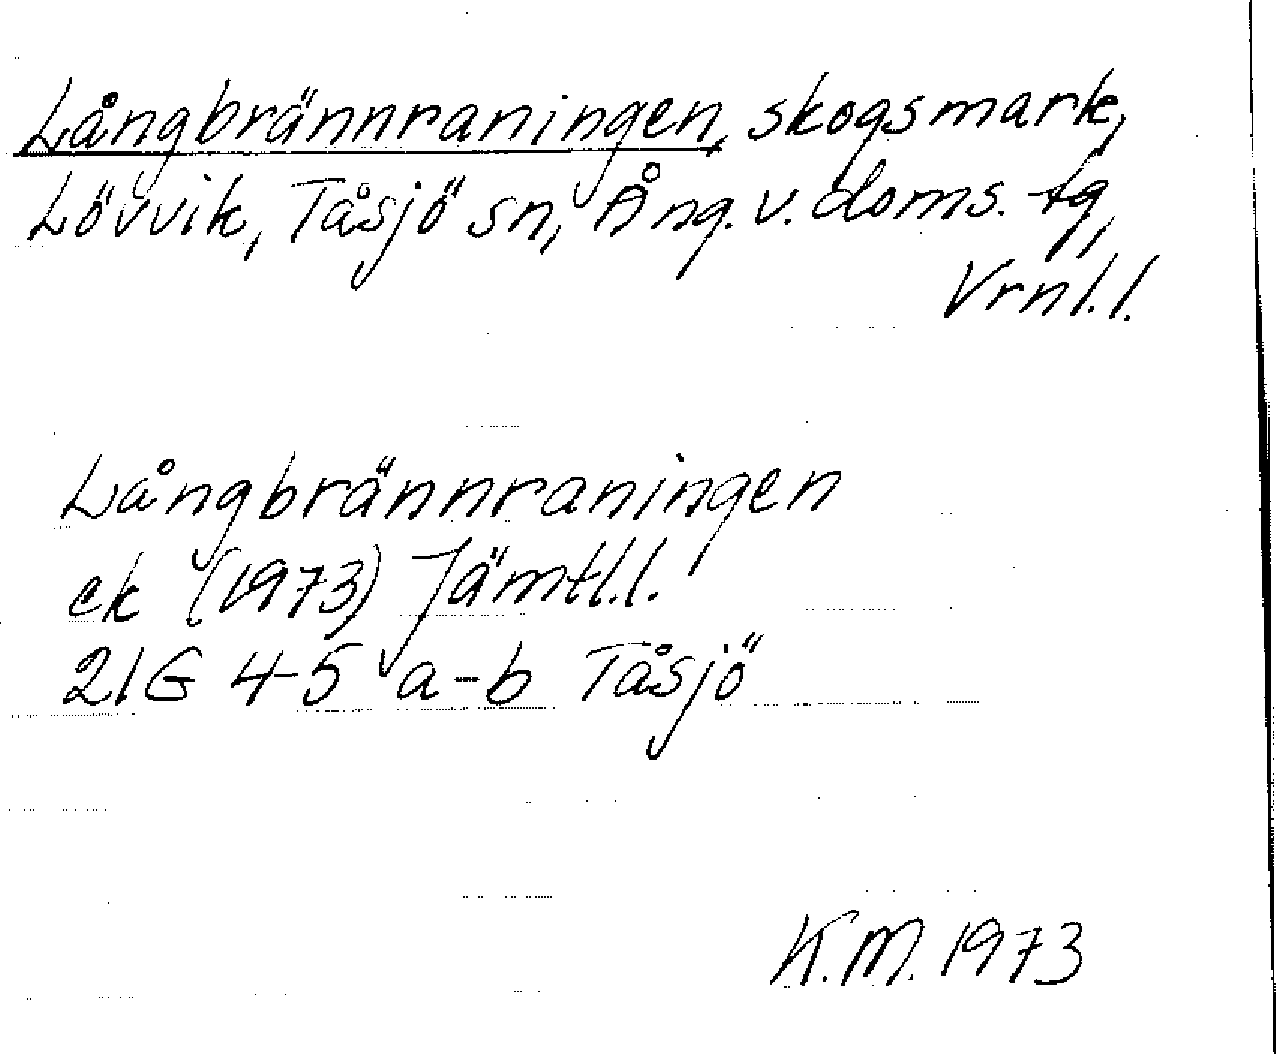 Långbrännraningen, skogsmark,
Lövvik, Tåsjö sn, Ång. v. doms. tg,
Vrnl.l.
Långbrännraningen
ek (1973) Jämtl.l.
21G 4-5 a-b Tåsjö
K.M. 1973